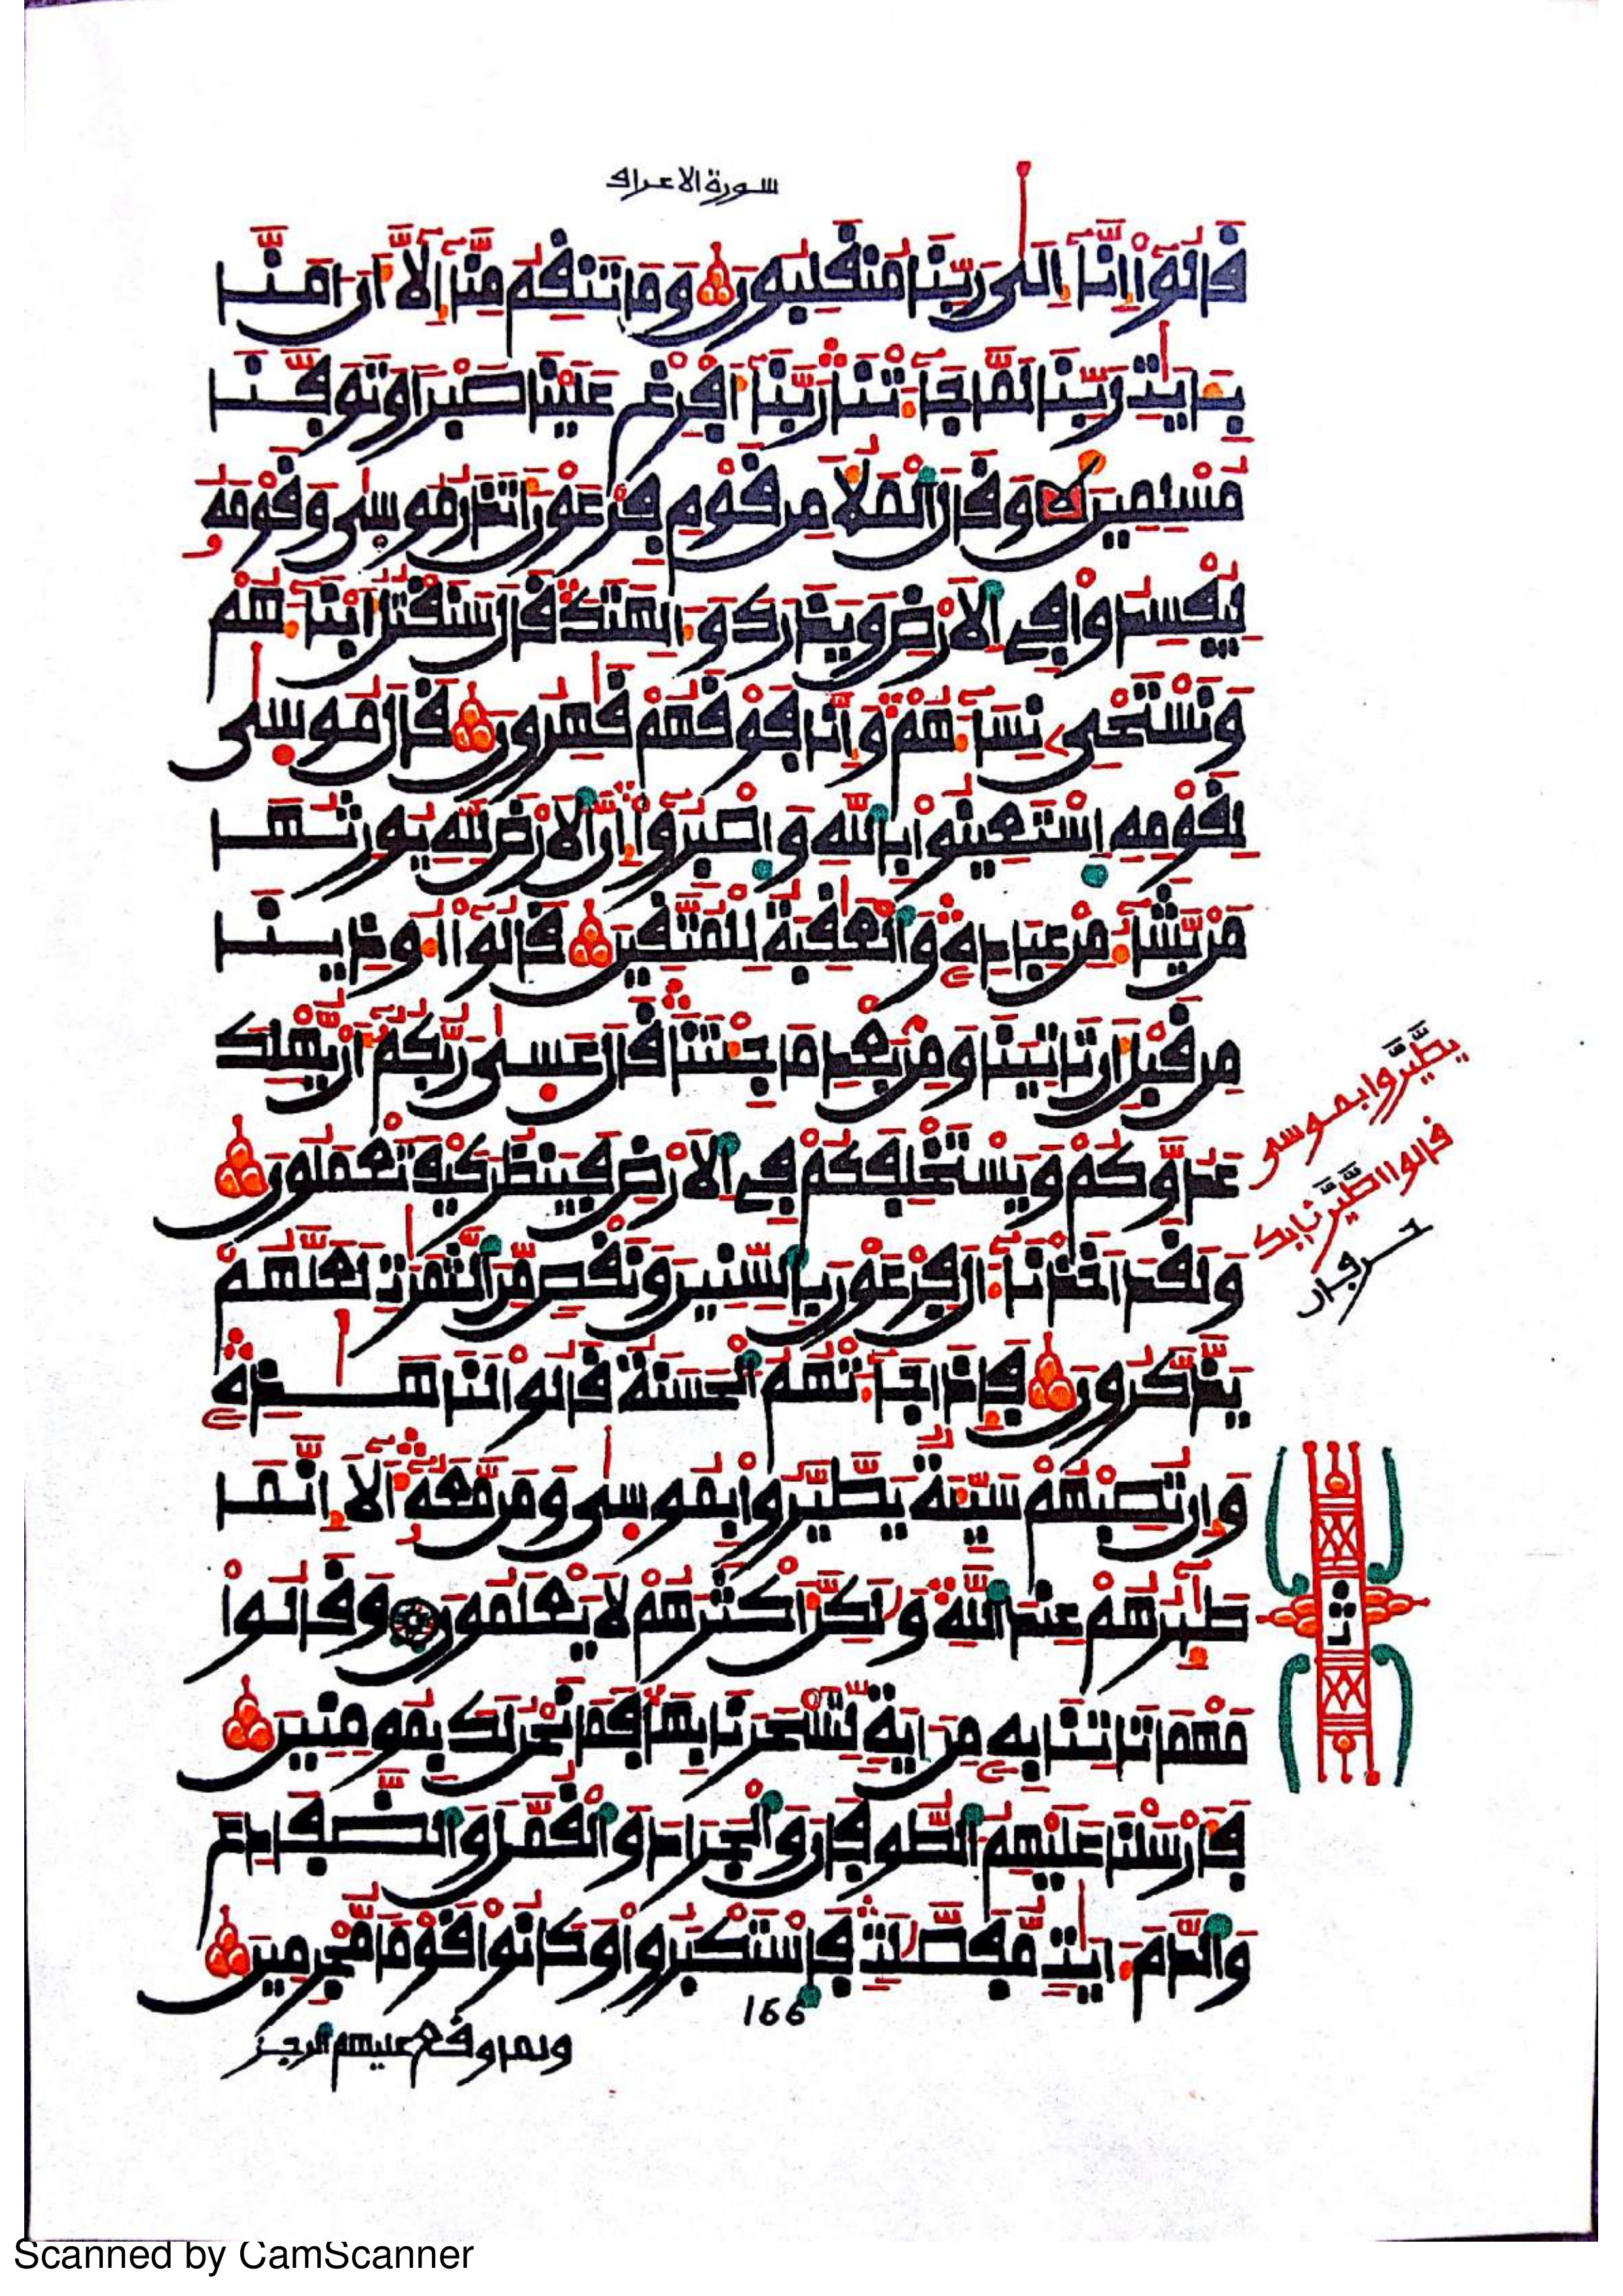 سورة الاعراف
قَالُوٓاْ إِنَّآ إِلَىٰ رَبِّنَا مُنقَلِبُونَ وَمَا تَنقِمُ مِنَّآ إِلَّآ أَنَ اٰمَنَّا
بِـَٔايَٰتِ رَبِّنَا لَمَّا جَآءَتْنَا رَبَّنَآ أَفْرِغْ عَلَيْنَا صَبْرًا وَتَوَفَّنَا
مُسْلِمِينَ وَقَالَ ٱلْمَلَأُ مِن قَوْمِ فِرْعَوْنَ أَتَذَرُ مُوسَىٰ وَقَوْمَهُۥ
لِيُفْسِدُواْ فِى ٱلْأَرْضِ وَيَذَرَكَ وَءَالِهَتَكَ قَالَ سَنَقْتُلُ أَبْنَآءَهُمْ
وَنَسْتَحْىِۦ نِسَآءَهُمْ وَإِنَّا فَوْقَهُمْ قَٰهِرُونَ قَالَ مُوسَىٰ
لِقَوْمِهِ ٱسْتَعِينُواْ بِٱللَّهِ وَٱصْبِرُوٓاْ إِنَّ ٱلْأَرْضَ لِلَّهِ يُورِثُهَا
مَنْ يَّشَآءُ مِنْ عِبَادِهِۦ وَٱلْعَٰقِبَةُ لِلْمُتَّقِينَ قَالُوٓاْ أُوذِينَا
مِن قَبْلِ أَن تَاتِيَنَا وَمِنۢ بَعْدِ مَا جِئْتَنَا قَالَ عَسَىٰ رَبُّكُمُۥٓ أَنْ يُّهْلِكَ
عَدُوَّكُمْ وَيَسْتَخْلِفَكُمْ فِى ٱلْأَرْضِ فَيَنظُرَ كَيْفَ تَعْمَلُونَ
يطّيّروا بموسى
قالوا اطّيّرنا بك
حرفان
وَلَقَدْ أَخَذْنَآ ءَالَ فِرْعَوْنَ بِٱلسِّنِينَ وَنَقْصٍ مِّنَ ٱلثَّمَرَٰتِ لَعَلَّهُمْ
يَذَّكَّرُونَ فَإِذَا جَآءَتْهُمُ ٱلْحَسَنَةُ قَالُواْ لَنَا هَٰذِهِۦ
وَإِن تُصِبْهُمْ سَيِّئَةٌ يَطَّيَّرُواْ بِمُوسَىٰ وَمَن مَّعَهُۥٓ أَلَآ إِنَّمَا
طَٰٓئِرُهُمْ عِندَ ٱللَّهِ وَلَٰكِنَّ أَكْثَرَهُمْ لَا يَعْلَمُونَ وَقَالُواْ
ثمن
مَهْمَا تَاتِنَا بِهِۦ مِنَ اٰيَةٍ لِّتَسْحَرَنَا بِهَا فَمَا نَحْنُ لَكَ بِمُومِنِينَ
فَأَرْسَلْنَا عَلَيْهِمُ ٱلطُّوفَانَ وَٱلْجَرَادَ وَٱلْقُمَّلَ وَٱلضَّفَادِعَ
وَٱلدَّمَ ءَايَٰتٍ مُّفَصَّلَٰتٍ فَٱسْتَكْبَرُواْ وَكَانُواْ قَوْمًا مُّجْرِمِينَ
166
ولما وقع عليهم الرجز
Scanned by CamScanner